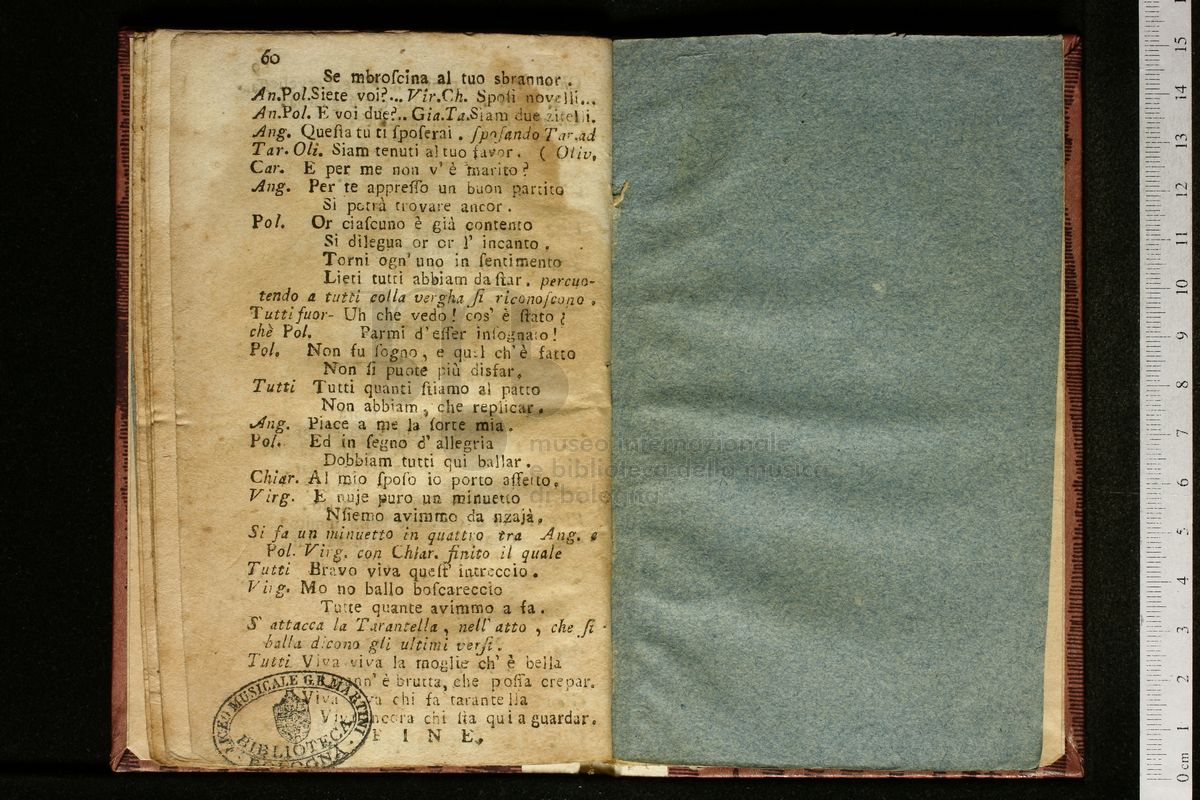 60
Se mbroſcina al tuo sbrannor.
An.Pol. Siete voi?... Vir.Ch. Spoſi novelli...
An.Pol. E voi due?.. Gia.Ta. Siam due zitelli.
Ang. Queſta tu ti ſpoſerai. ſpoſando Tar. ad
Tar. Oli. Siam tenuti al tuo favor. ( Oliv.
Car. E per me non v' è marito?
Ang. Per te appreſſo un buon partito
Si potrà trovare ancor.
Pol. Or ciaſcuno è già contento
Si dilegua or or l' incanto.
Torni ogn' uno in ſentimento
Lieti tutti abbiam da ſtar. percuo-
tendo a tutti colla vergha ſi riconoſcono.
Tutti fuor- Uh che vedo! cos' è ſtato?
chè Pol. Parmi d' eſſer inſognato!
Pol. Non fu ſogno, e quel ch' è fatto
Non ſi puote più disfar.
Tutti Tutti quanti ſtiamo al patto
Non abbiam, che replicar.
Ang. Piace a me la ſorte mia.
Pol. Ed in ſegno d' allegria
Dobbiam tutti qui ballar.
Chiar. Al mio ſpoſo io porto affetto.
Virg. E nuje puro un minuetto
Nſiemo avimmo da nzajà.
Si fa un minuetto in quattro tra Ang. e
Pol. Virg. con Chiar. finito il quale
Tutti Bravo viva queſt' intreccio.
Virg. Mo no ballo boſcareccio
Tutte quante avimmo a fa.
S' attacca la Tarantella, nell' atto, che ſi
balla dicono gli ultimi verſi.
Tutti Viva viva la moglie ch' è bella
è brutta, che poſſa crepar.
Viva chi fa tarantella
chi ſta qui a guardar.
FINE.
LICEO MUSICALE G.B. MARTINI
BIBLIOTECA
BOLOGNA
museo internazionale
e biblioteca della musica
di bologna
0 cm 1 2 3 4 5 6 7 8 9 10 11 12 13 14 15